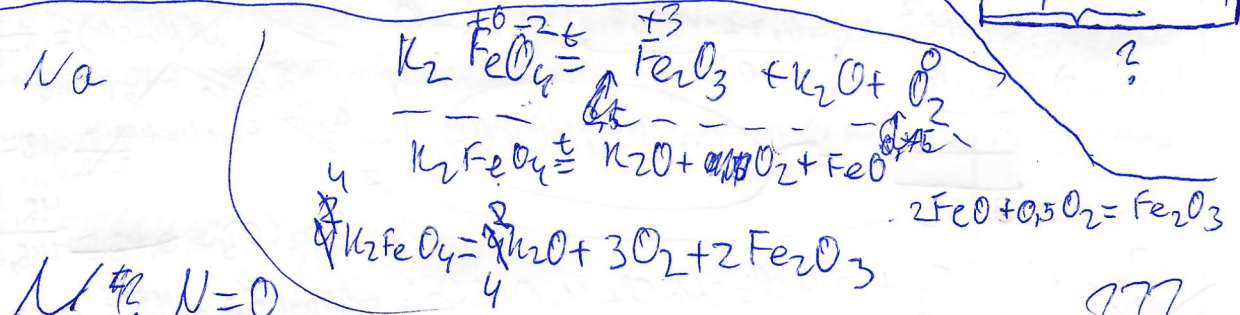 ?
Na
+6 -2 +3 0
K₂FeO₄ =ᵗ Fe₂O₃ + K₂O + O₂
K₂FeO₄ =ᵗ K₂O + O₂ + FeO
2FeO + 0,5O₂ = Fe₂O₃
4K₂FeO₄ = 4K₂O + 3O₂ + 2Fe₂O₃
N=0
???